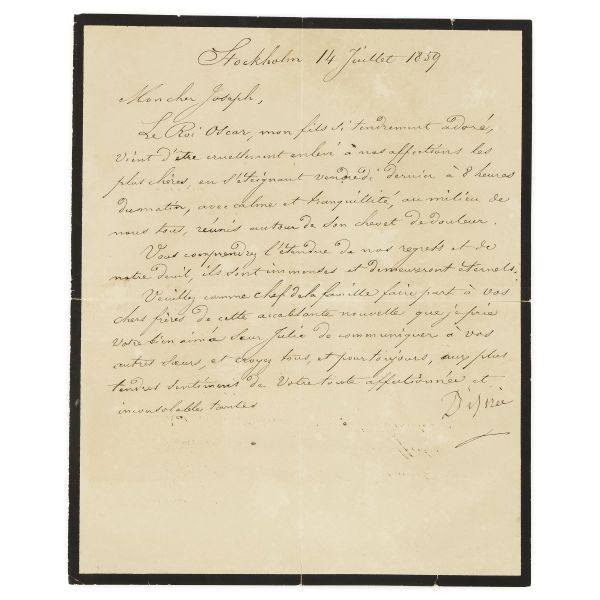 Stockholm 14 Juillet 1859
Mon cher Joseph,
Le Roi Oscar, mon fils si tendrement adoré,
vient d'être cruellement enlevé à nos affections les
plus chères, en s'éteignant vendredi dernier à 8 heures
du matin, avec calme et tranquillité, au milieu de
nous tous, réunis autour de son chevet de douleur.
Vous comprendrez l'étendue de nos regrets et de
notre deuil, ils sont immenses et demeureront éternels.
Veuillez comme chef de la famille faire part à vos
chers frères de cette accablante nouvelle que je prie
votre bien aimée sœur Julie de communiquer à vos
autres sœurs, et croyez tous, et pour toujours, aux plus
tendres sentimens de votre toute affectionnée et
inconsolable tante
Désirée